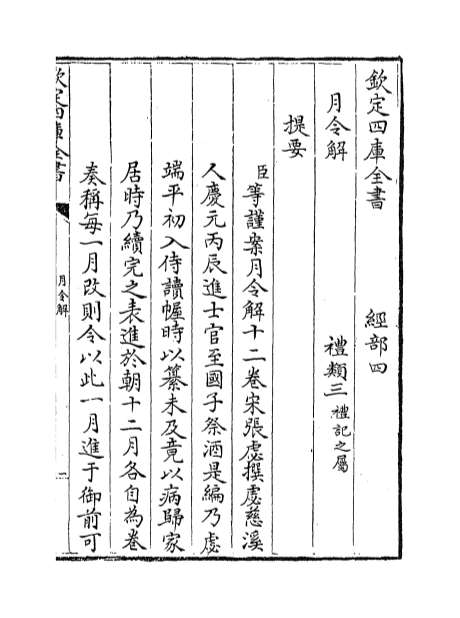 欽定四庫全書　經部四
月令解　禮類三禮記之屬
提要
臣等謹案月令解十二卷宋張虙撰虙慈溪
人慶元丙辰進士官至國子祭酒是編乃虙
端平初入侍讀幄時以纂未及竟以病歸家
居時乃續完之表進於朝十二月各自為卷
奏稱每一月改則令以此一月進于御前可
欽定四庫全書
月令解